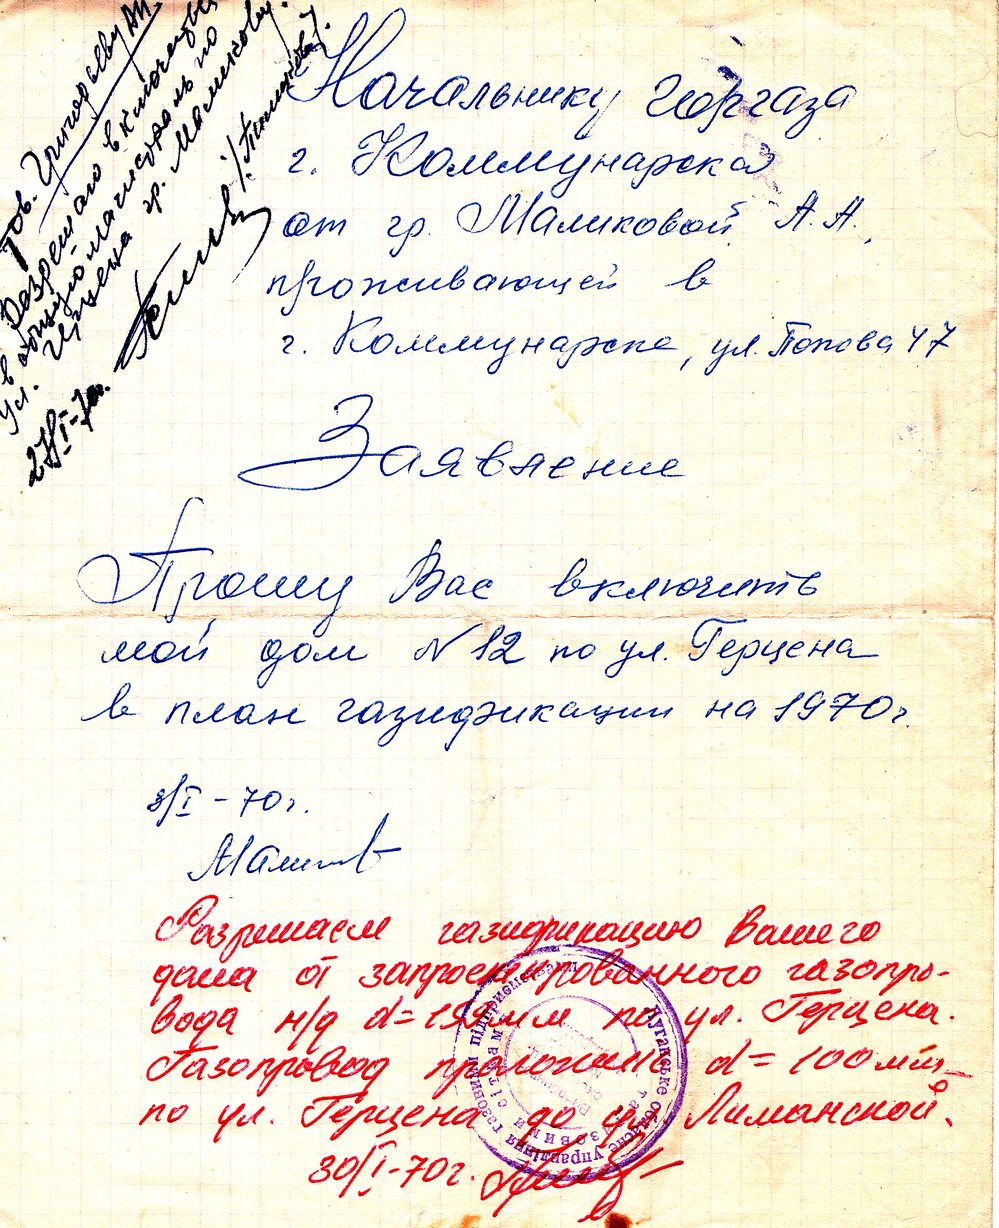 Тов. Григорьеву А.И.
Разрешаю включение
в общую магистраль по
ул. Герцена гр. Маликову.
27/I-70г.
Начальнику горгаза
г. Коммунарска
от гр. Маликовой А.А.,
проживающей в
г. Коммунарске, ул. Попова 47
Заявление
Прошу Вас включить
мой дом N 12 по ул. Герцена
в план газификации на 1970г.
8/I-70г.
Разрешаем газификацию Вашего
дома от запроектированного газопро-
вода н/д d=100мм по ул. Герцена.
Газопровод проложить d=100мм
по ул. Герцена до ул. Лиманской.
30/I-70г.
Луганське обласне управління газовими підприємствами
та газовими сітками